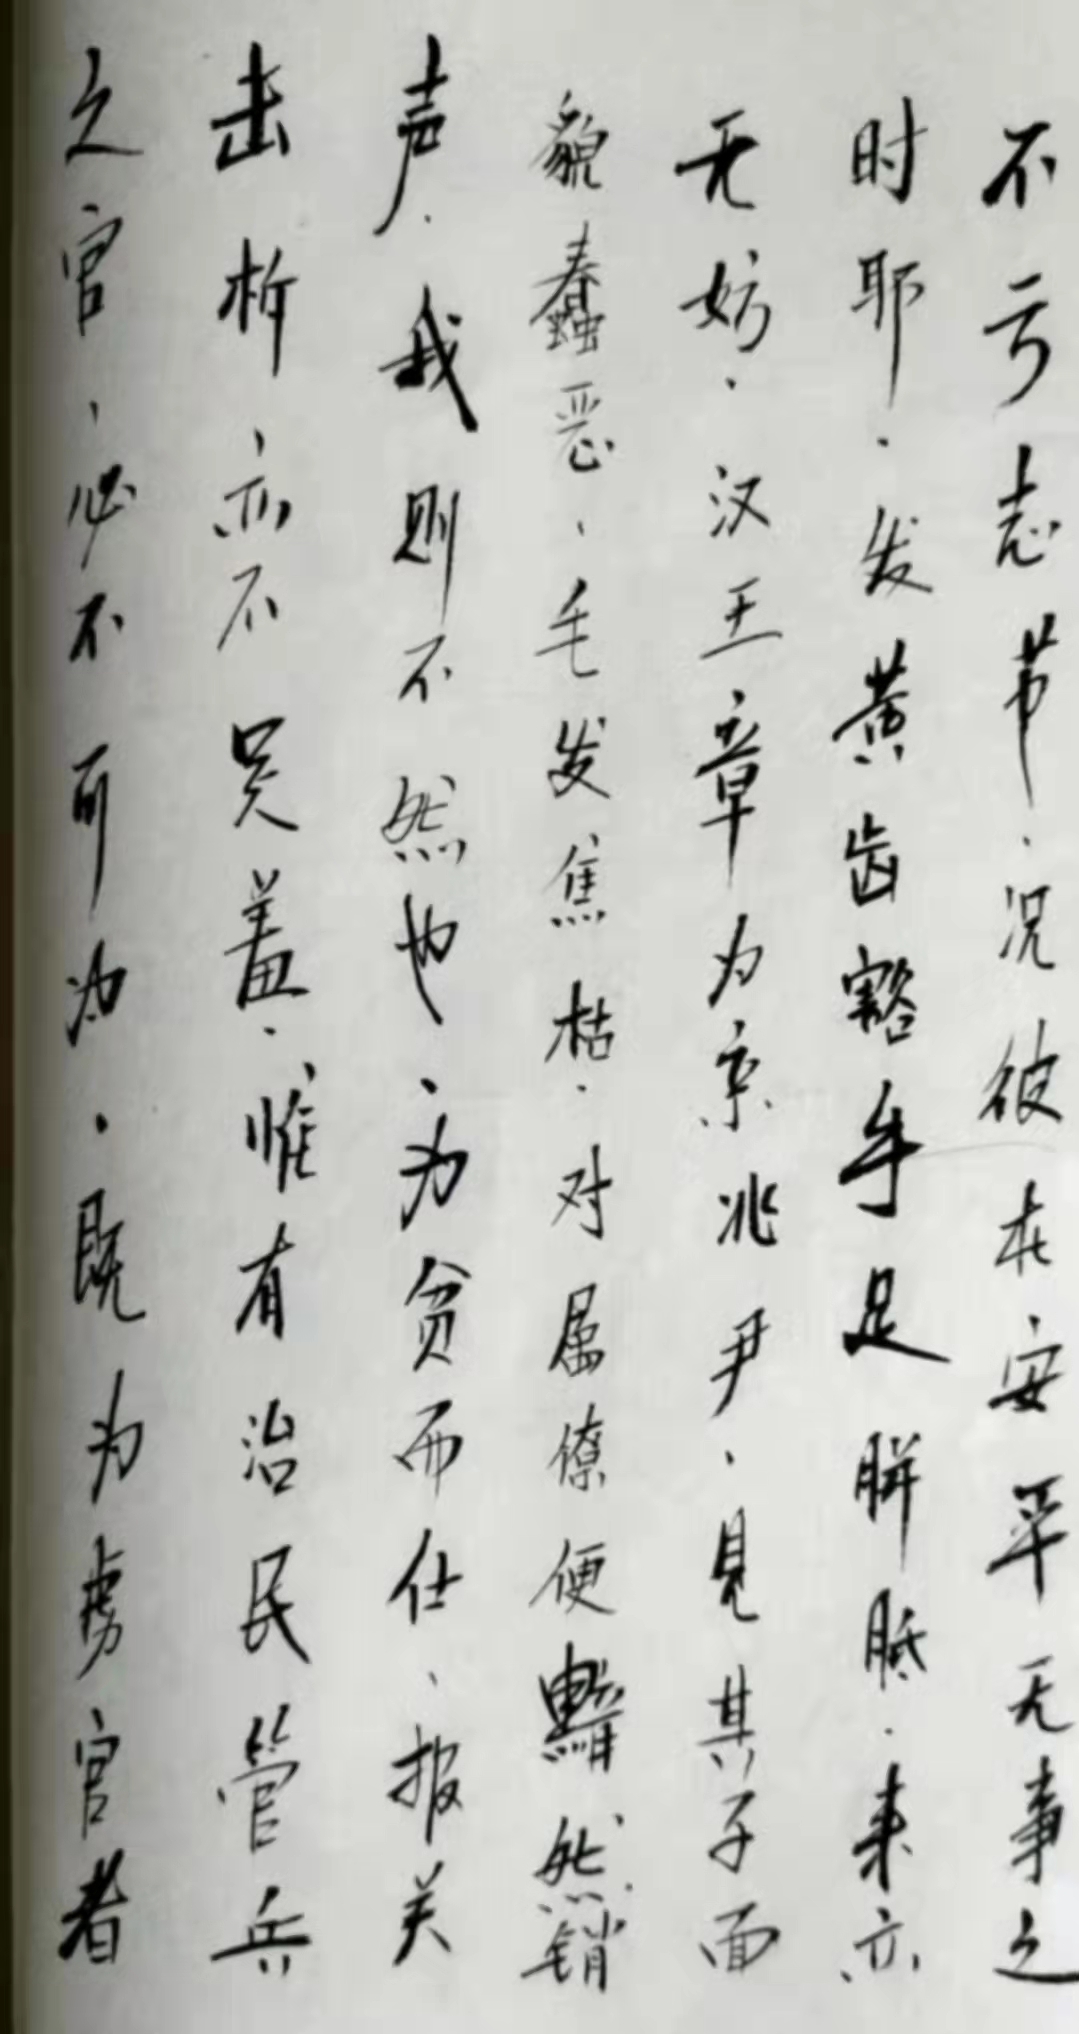 不亏志节.况彼在安平无事之
时耶.发黄齿豁手足胼胝.来亦
无妨.汉王章为京兆尹.见其子面
貌蠢恶、毛发焦枯.对属僚便黯然销
声.我则不然也、为贫而仕、报关
击柝、亦不足羞.惟有治民管兵
之官、必不可为.既为虏官者